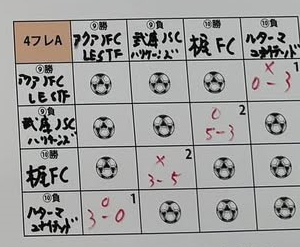 4フレA
⑨勝 ⑨負 ⑩勝 ⑩負
アクアJFC 武庫JSC 梶FC ハターマ
LESTE ハリケーンズ ユナイテッド
⑨勝
アクアJFC × 1
LESTE 0-3
⑨負
武庫JSC ○ 2
ハリケーンズ 5-3
⑩勝
梶FC × 2
3-5
⑩負
ハターマ ○ 1
ユナイテッド 3-0